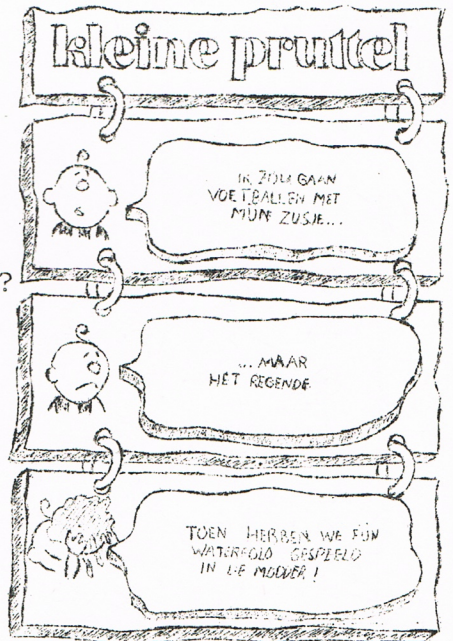 kleine pruttel
IK ZOU GAAN
VOETBALLEN MET
MIJN ZUSJE...
?
... MAAR
HET REGENDE
TOEN HEBBEN WE FIJN
WATERPOLO GESPEELD
IN DE MODDER!